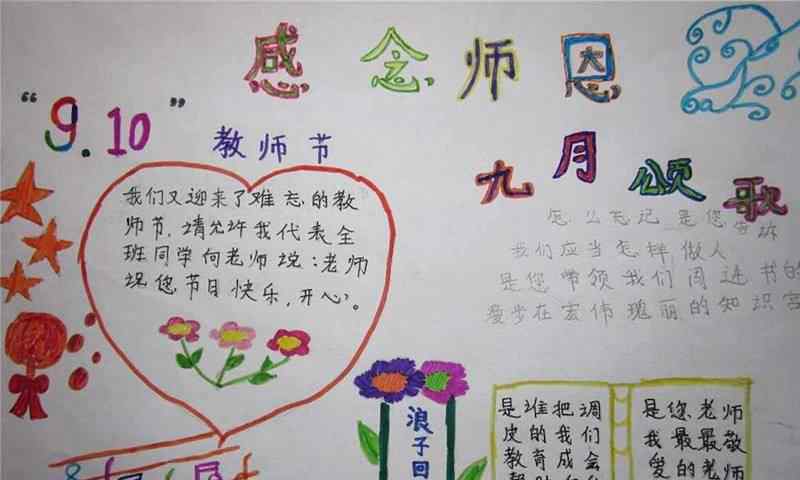 感念师恩
“9.10”
教师节
九月颂歌
我们又迎来了难忘的教
师节，请允许我代表全
班同学向老师说：老师
祝您节日快乐，开心。
怎么忘记是您告诉
我们应当怎样做人
是您带领我们闯进书的
爱步在宏伟瑰丽的知识宫
浪子回
是谁把调
皮的我们
教育成会
是您老师
我最最敬
爱的老师